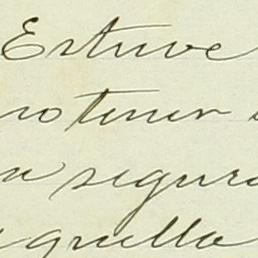 Estuve
no tener
segura
aquella